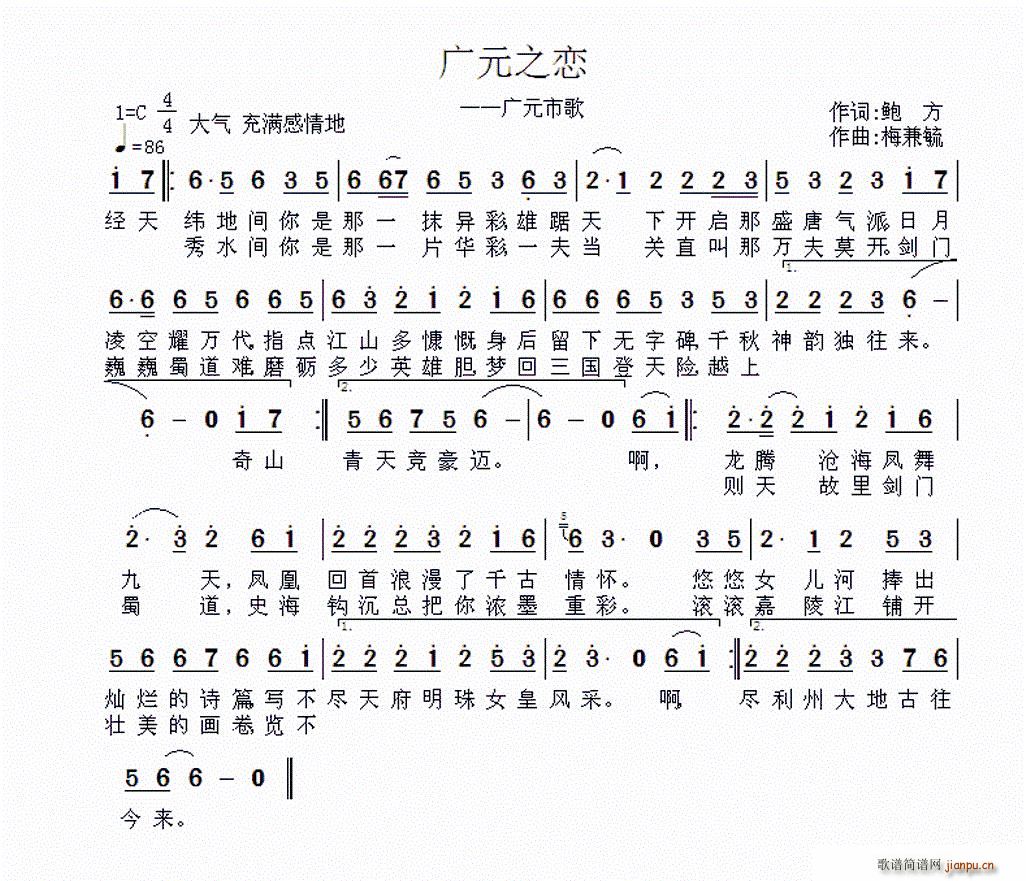 广元之恋
——广元市歌
1=C 4/4 大气 充满感情地
作词:鲍 方
♩=86
作曲:梅兼毓
i 7 ‖: 6·5 6 3 5 | 6 67 6 5 3 6 3 | 2·1 2 2 2 3 | 5 3 2 3 i 7 |
经天 纬地间你是那一 抹异彩,雄踞天 下开启那盛唐气派,日月
秀水间你是那一 片华彩,一夫当 关直叫那万夫莫开。剑门
1.
6·6 6 5 6 6 5 | 6 3 2 1 2 1 6 | 6 6 6 5 3 5 3 | 2 2 2 3 6 – |
凌空耀万代。指点江山多慷慨身后留下无字碑,千秋神韵独往来。
巍巍蜀道难,磨砺多少英雄胆,梦回三国登天险,越上
2.
6 – 0 i 7 :‖ 5 6 7 5 6 – | 6 – 0 6 i ‖: 2·2 2 1 2 1 6 |
奇山 青天竞豪迈。 啊, 龙腾 沧海凤舞
则天 故里剑门
2· 3 2 6 i | 2 2 2 3 2 1 6 | 5 6 3· 0 3 5 | 2· 1 2 5 3 |
九 天,凤凰 回首浪漫了千古 情怀。 悠悠女 儿河捧出
蜀 道,史海 钩沉总把你浓墨 重彩。 滚滚嘉 陵江铺开
1. 2.
5 6 6 7 6 6 i | 2 2 2 1 2 5 3 | 2 3· 0 6 i :‖ 2 2 2 3 3 7 6 |
灿烂的诗篇,写不尽天府明珠女皇风采。 啊, 尽利州大地古往
壮美的画卷,览不
5 6 6 – 0 ‖
今来。
歌谱简谱网 jianpu.cn